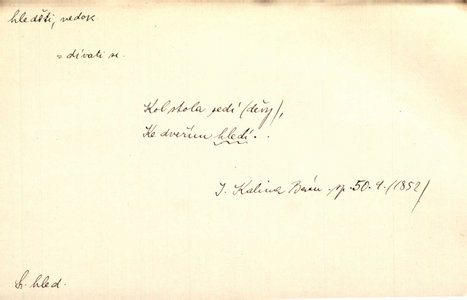 hleděti, nedok
= dívati se.
Kol stola sedí (děvy),
Ke dveřím hledí.
J. Kalina Básn. sp. 50.4. (1852)
hled.